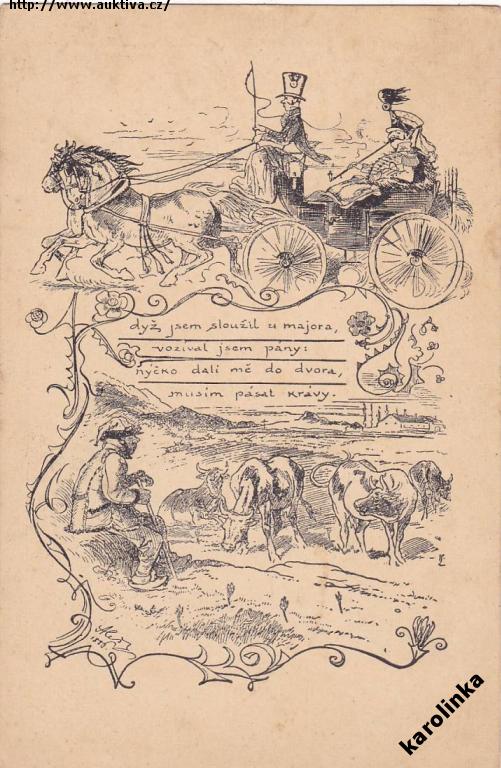 http://www.auktiva.cz/
dyž jsem sloužil u majora,
vozíval jsem pány:
nyčko dali mě do dvora,
musím pásat krávy.
karolinka